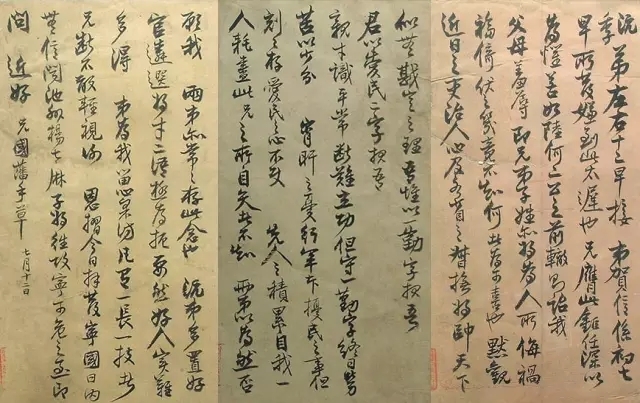 沅季弟左右十二早接 弟賀信係初七
早所發嫌到此太遲也兄膺此鉅任深以
為懼若如陸何二公之前轍則詒我
父母羞辱即兄弟子姪亦將為人所侮禍
福倚伏之幾竟不知何者為可喜也默觀
近日之吏治人心及各省之督撫將帥天下
似無戡定之理吾惟以勤字報吾
君以愛民二字報吾
親才識平常斷難立功但守一勤字終日勞
苦以少分 宵旰之憂行軍本擾民之事但
刻刻存愛民之心不使 先人之積累自我一
人耗盡此兄之所自矢者不知 兩弟以為然否
願我 兩弟亦常常存此念也 沅弟多置好
官遴選將才二語極為扼要然好人實難
多得 弟為我留心采訪凡有一長一技者
兄斷不敢輕視謝 恩摺今日拜發寧國日內
無信聞池州楊七麻子將往攻寧可危之至即
問 近好 兄國藩手草
七月十二日